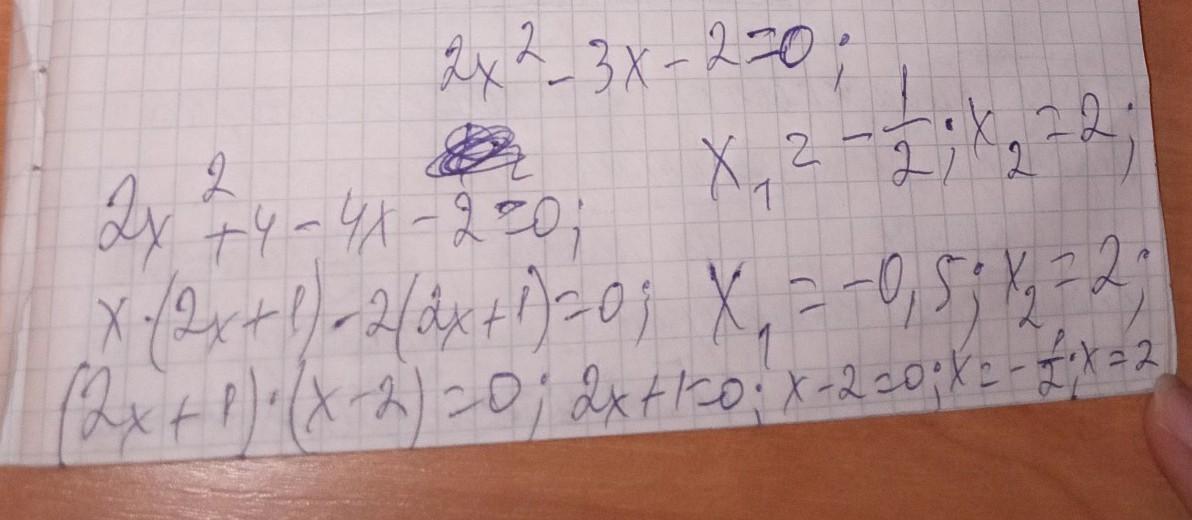 2x² - 3x - 2 = 0;
x₁ = -1/2; x₂ = 2;
2x² + 4 - 4x - 2 = 0;
x·(2x+1) - 2(2x+1) = 0; x₁ = -0,5; x₂ = 2;
(2x+1)·(x-2) = 0; 2x+1=0; x-2=0; x=-1/2; x=2